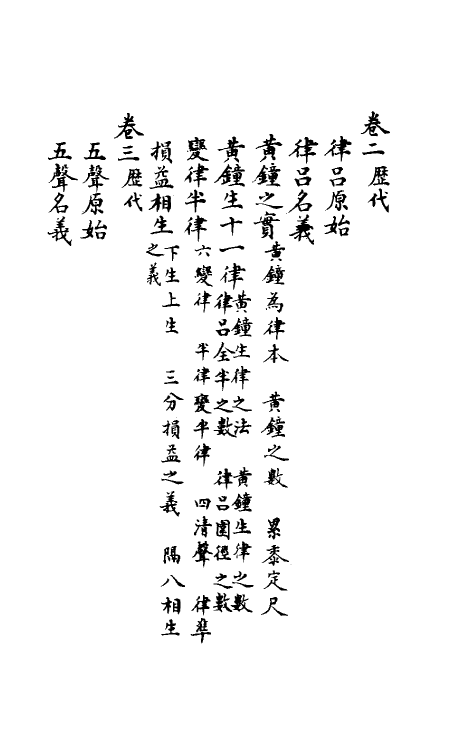 卷二歴代
律吕原始
律吕名義
黄鐘之實 黄鐘為律本 黄鐘之數 累黍定尺
黄鐘生十一律 黄鐘生律之法 黄鐘生律之數
律吕全半之數 律吕圍徑之數
變律半律 六變律 半律變半律 四清聲 律準
損益相生 下生上生 三分損益之義 隔八相生
之義
卷三歴代
五聲原始
五聲名義